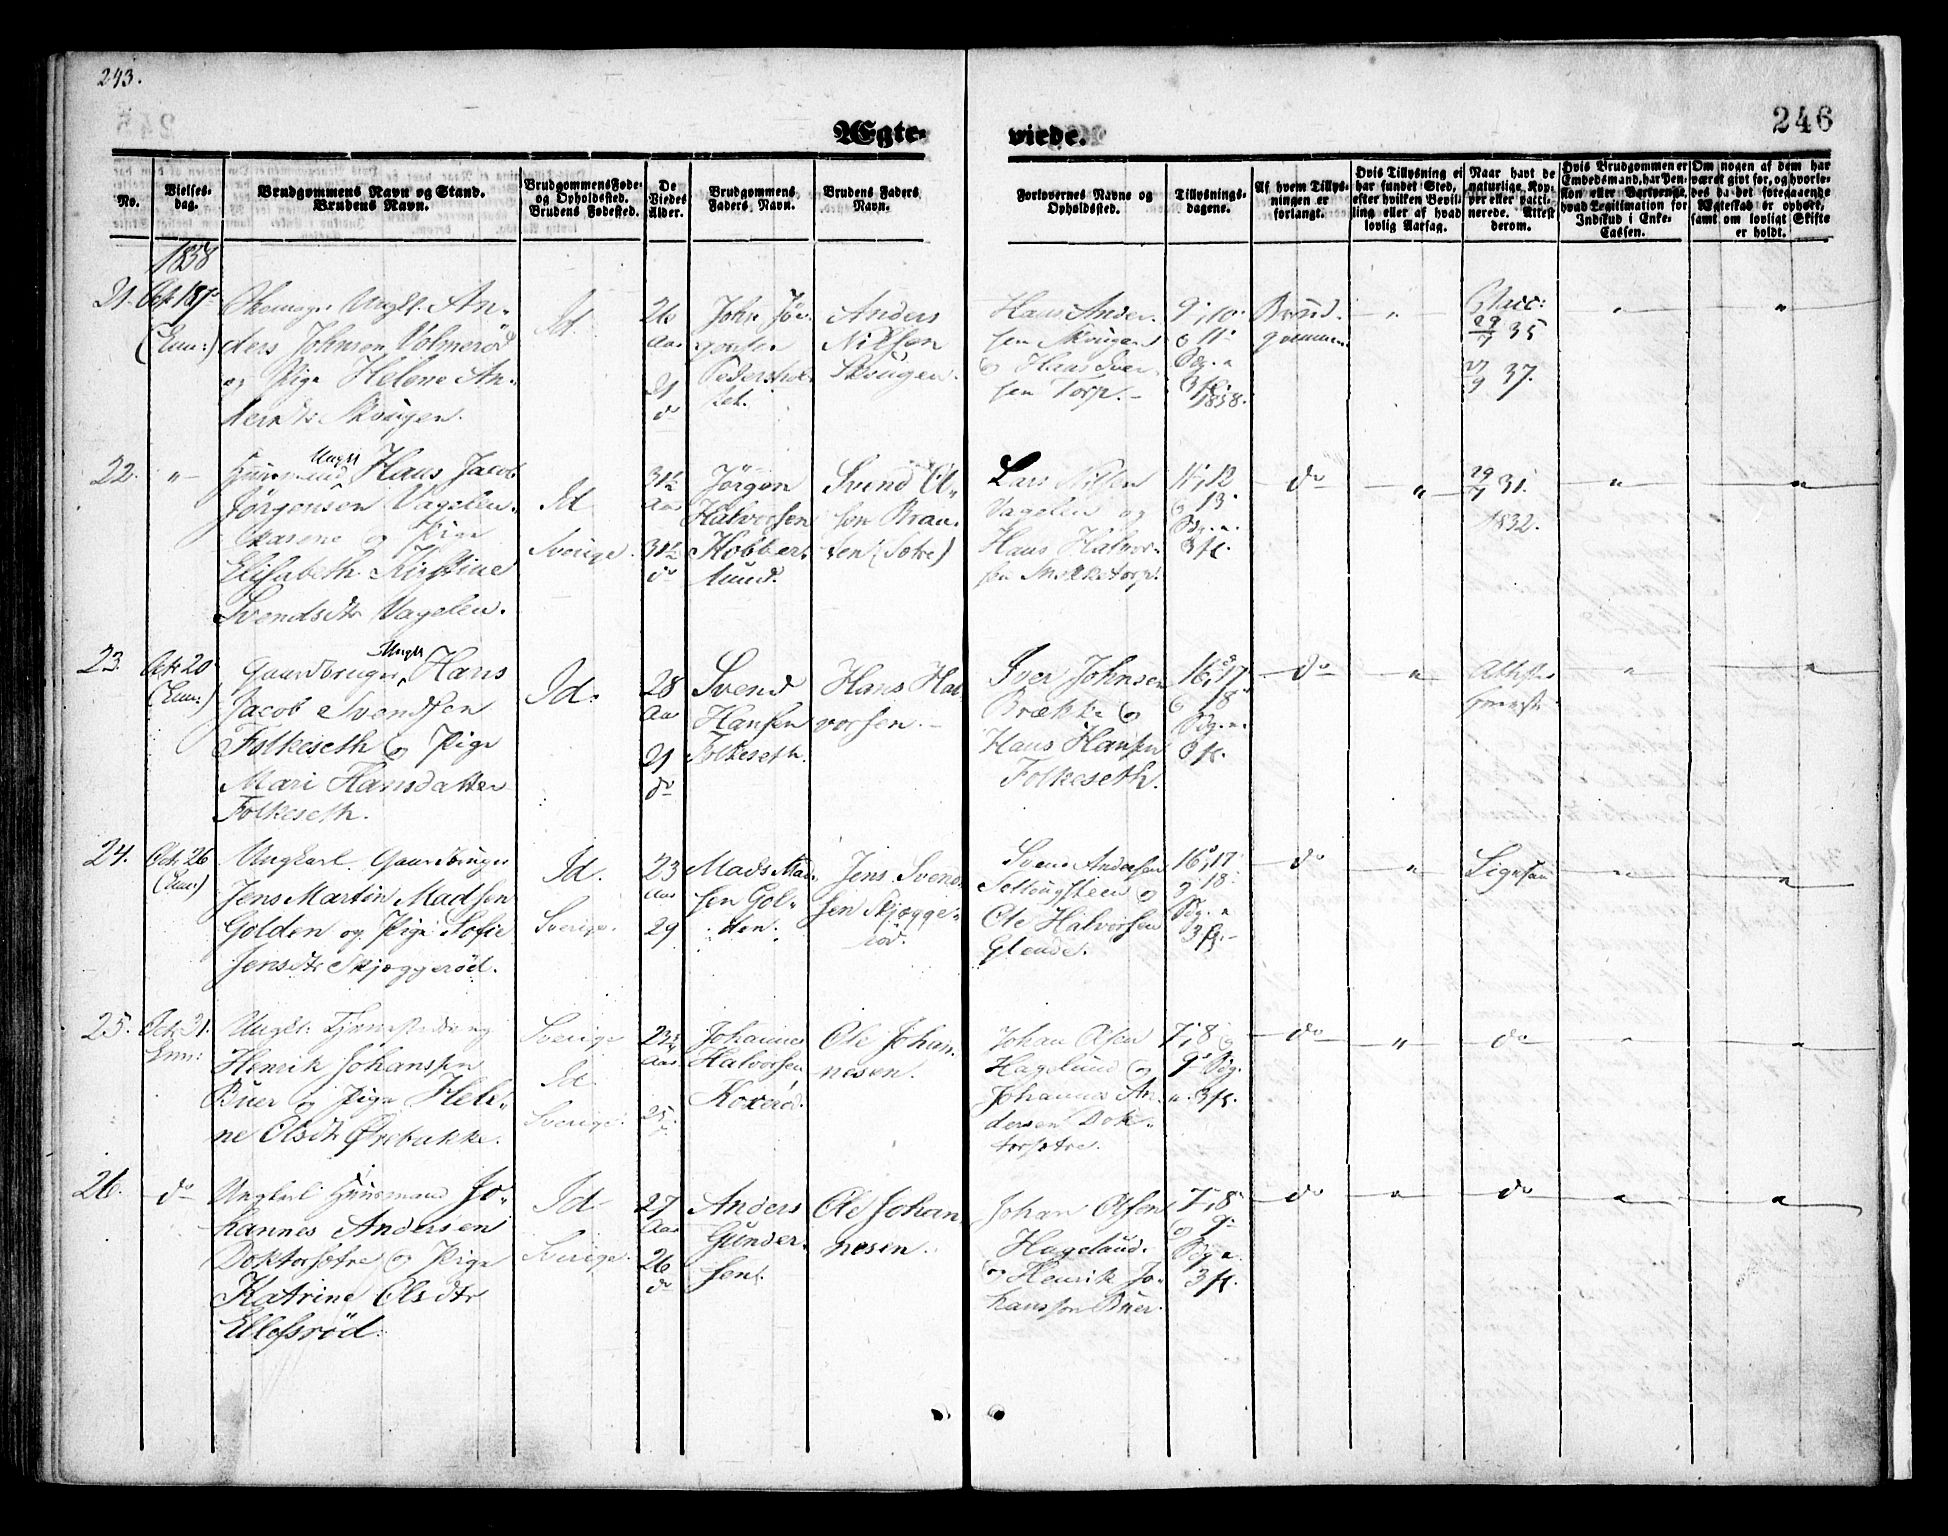 243.
246
Ægte-
viede.
No.
Vielses-
dag.
Brudgommens Navn og Stand.
Brudens Navn.
Brudgommens Føde-
og Opholdsted.
Brudens Fødested.
De
Viedes
Alder.
Brudgommens
Faders Navn.
Brudens Faders
Navn.
Forlovernes Navne og
Opholdssted.
Tillysnings-
dagene.
Af hvem Tillys-
ningen er
forlangt.
Hvis Tillysning ei
har fundet Sted,
efter hvilken Bevil-
ling eller af hvad
lovlig Aarsag.
Naar havt de
naturlige Kop-
per eller vacci-
nerede. Attest
derom.
Hvis Brudgommen er
Embedsmand, har Pen-
sion eller Vartpenge,
hvad Legitimation for
Indskud i Enke-
Cassen.
Om nogen af dem har
været givt før, og hvorle-
des da det foregaaende
Ægteskab er ophørt,
samt om lovligt Skifte
er holdt.
1858
21.
Ungk. An-
ders Johnsen Volmerød
og Pige Helene An-
dersdtr Skougen.
Id.
26
Aar
21
do
John Jør-
gensen
Pedershol-
tet.
Anders
Nilsen
Skougen.
Hans Ander-
sen Skougen
og Hans Iver-
sen Torp.
9, 10
o 11
1858.
Brud-
gommen
Vacc:
29/7 35
27/9 37.
22.
"
Huusmand Ungk Hans Jacob
Jørgensen Vagelen-
og Pige
Elisabeth Kirstine
Svendsdtr Vagelen.
Id
Sverige.
31½
Aar
31½
do
Jørgen
Halvorsen
Kobber-
lund.
Svend Ol-
sen Brau-
ten (Sotre)
Lars Nilsen
Vagelen og
Hans Halvor-
sen
11, 12
o 13
do
"
29/7 31.
1832.
"
"
23
Oct 20
Gaardbruger Ungk Hans
Jacob Svendsen
Folkeseth og Pige
Mari Hansdatter
Folkeseth.
Id.
28
Aar
21
do
Svend
Hansen
Folkeseth.
Hans Hal-
vorsen.
Iver Johnsen
Brække og
Hans Hansen
Folkeseth.
16, 17
o 18
do
"
"
"
24.
Oct. 26
Ungkarl Gaardbruger
Jens Martin Madsen
Golden og Pige Sofie
Jensdtr Skjæggerød.
Id.
Sverige.
23
Aar
29
Mads Mad-
sen Gol-
den.
Jens Svend-
sen Skjægge-
rød.
Svend Andersen
og
Ole Halvorsen
Glende.
16, 17
o 18
do
"
"
"
25.
Oct. 31.
Ungk.
Henrik Johansen
Buer og Pige Hele-
ne Olsdtr Ørebakke.
Sverige
Id.
Sverige.
Aar
25
Johannes
Halvorsen
Koxerød.
Ole Johan-
nesen.
Johan Olsen
Hagelund og
Johannes An-
dersen Dok-
torsotre.
7, 8 o
9
do
"
do
"
"
26.
do
Ungkarl Huusmand Jo-
hannes Andersen
Doktorsotre og Pige
Katrine Olsdtr
Ellefsrød.
Id
Sverige.
27
Aar
26
do
Anders
Gunder-
sen.
Ole Johan-
nesen.
Johan Olsen
Hagelund.
og Henrik Jo-
hansson Buer.
7, 8
o 9
do
"
do
"
"